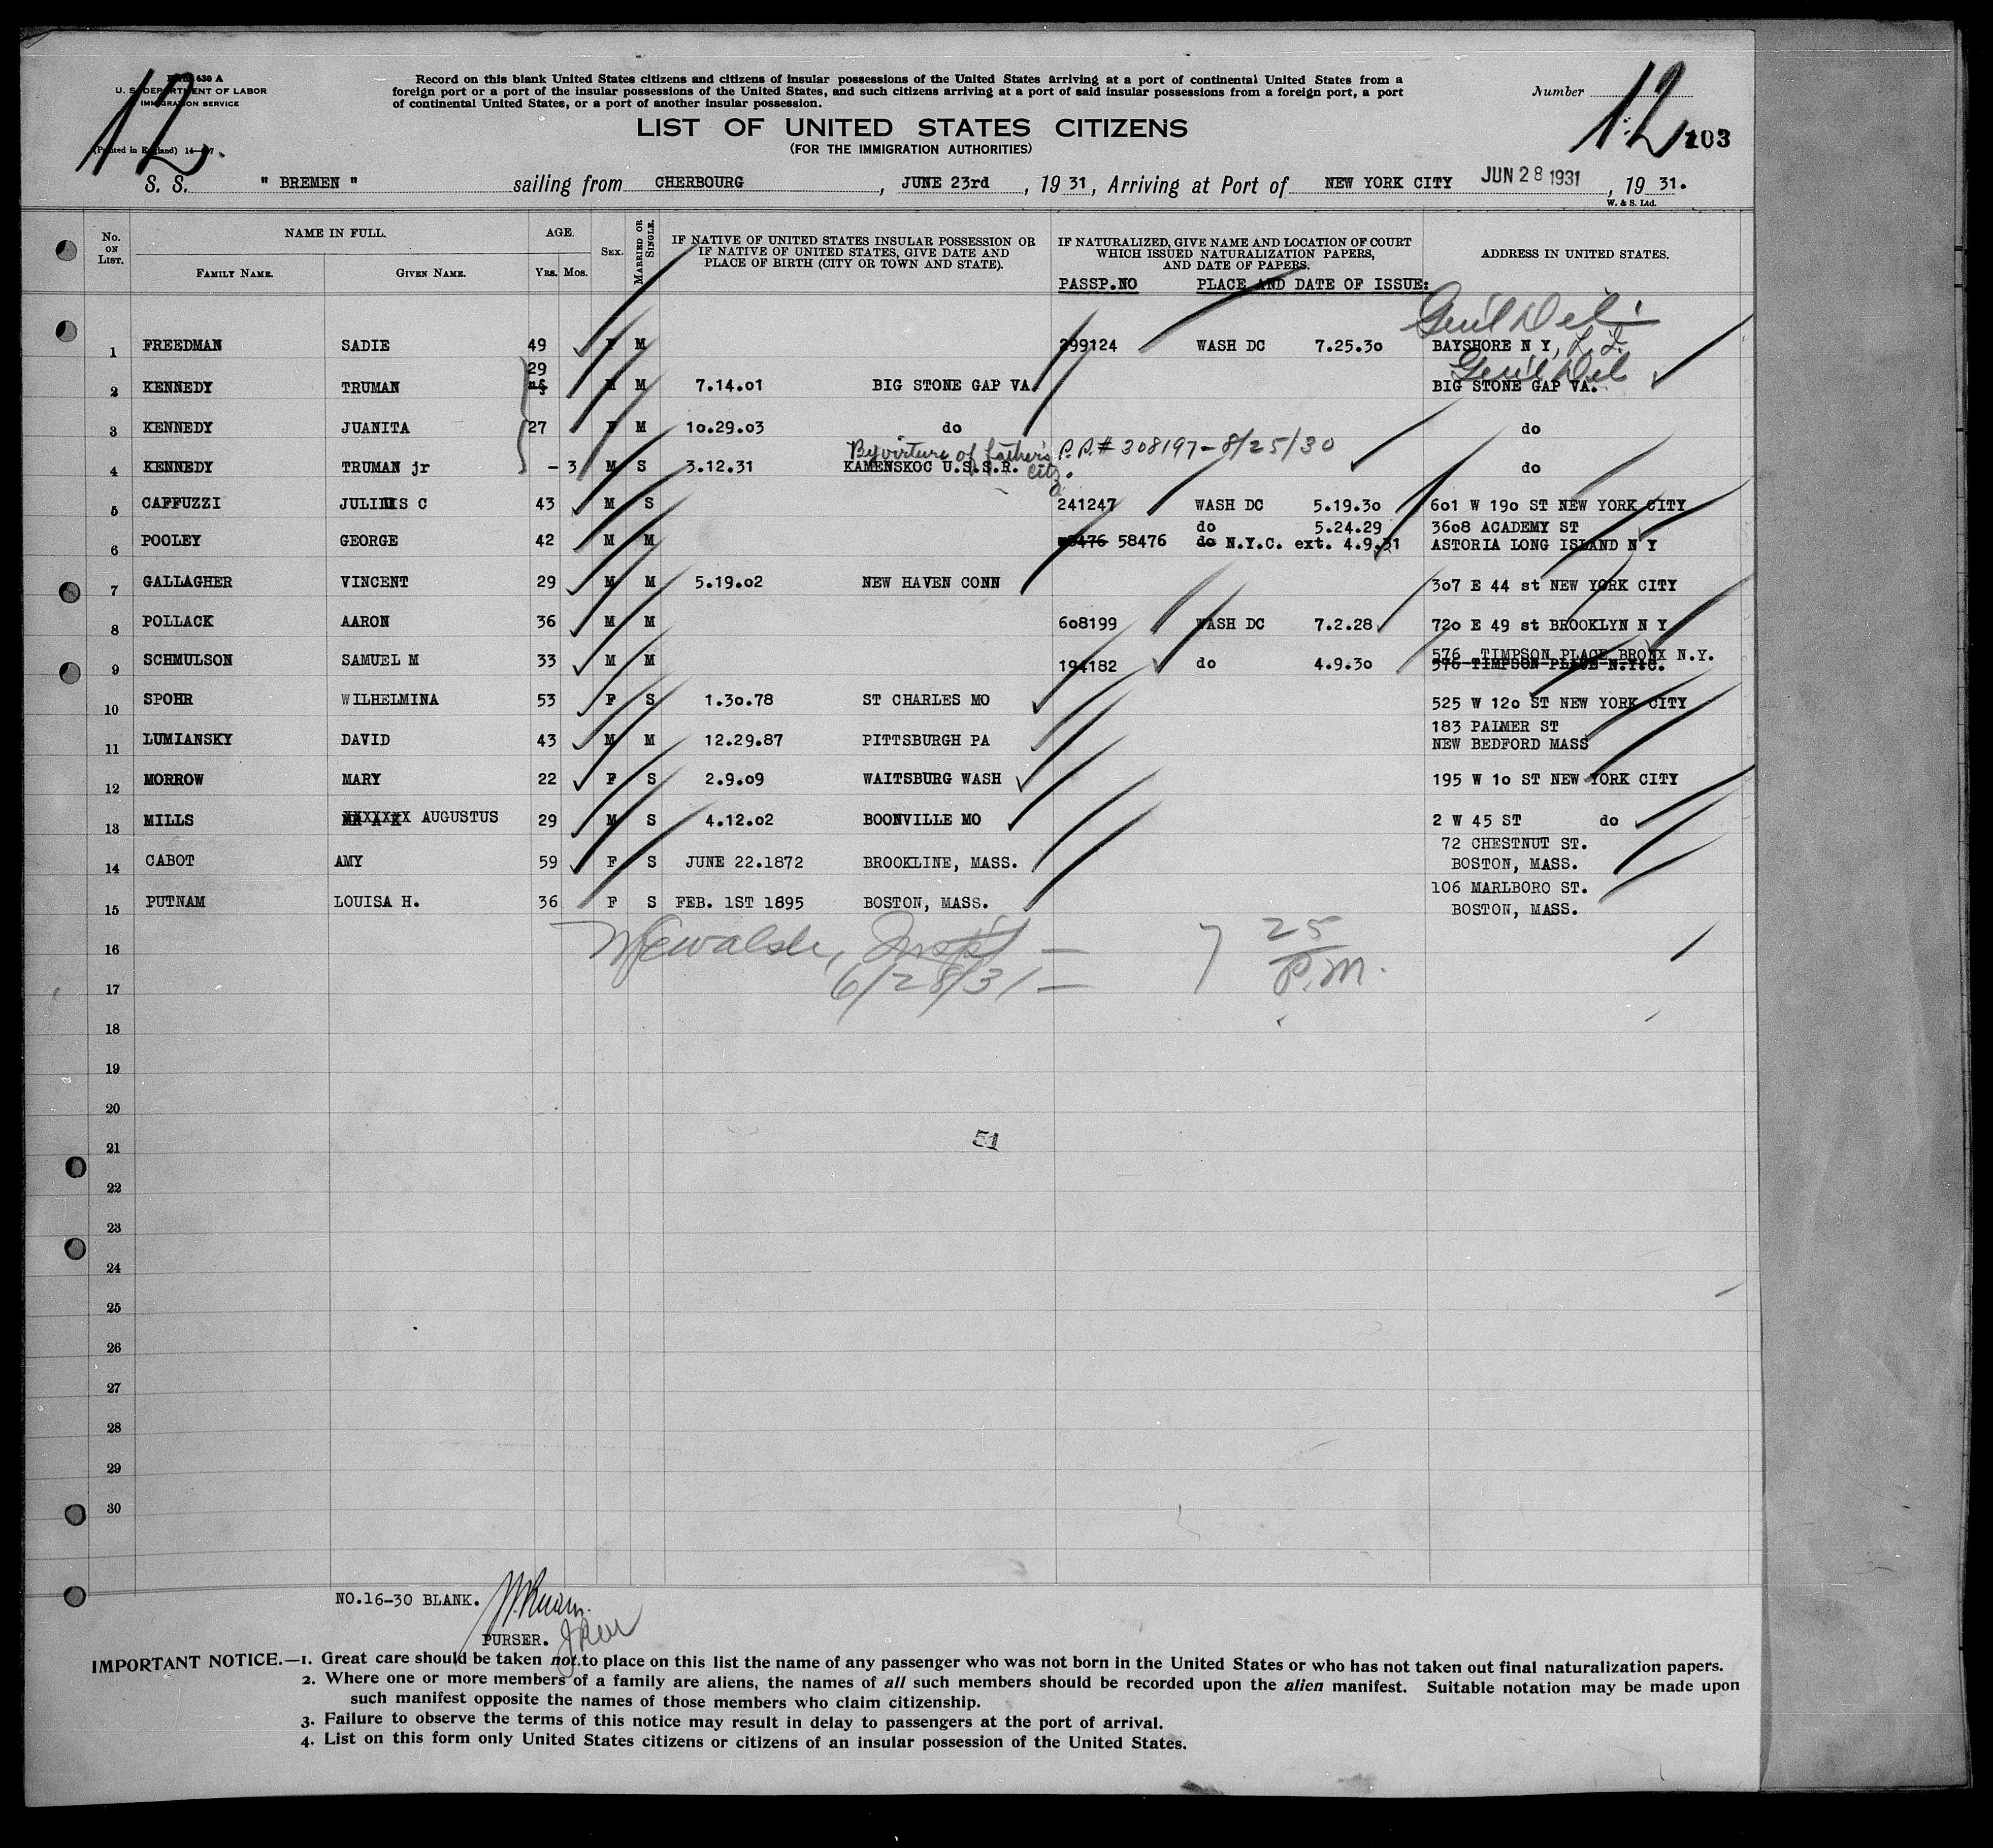 Form 630 A
U. S. DEPARTMENT OF LABOR
IMMIGRATION SERVICE
(Printed in England) 14—
12
Record on this blank United States citizens and citizens of insular possessions of the United States arriving at a port of continental United States from a
foreign port or a port of the insular possessions of the United States, and such citizens arriving at a port of said insular possessions from a foreign port, a port
of continental United States, or a port of another insular possession.
Number 12
103
LIST OF UNITED STATES CITIZENS
(FOR THE IMMIGRATION AUTHORITIES)
S. S. " BREMEN " sailing from CHERBOURG, JUNE 23rd, 19 31, Arriving at Port of NEW YORK CITY JUN 28 1931, 19 31.
W. & S. Ltd.
No. ON LIST. NAME IN FULL. AGE. SEX. MARRIED OR SINGLE. IF NATIVE OF UNITED STATES INSULAR POSSESSION OR IF NATIVE OF UNITED STATES, GIVE DATE AND PLACE OF BIRTH (CITY OR TOWN AND STATE). IF NATURALIZED, GIVE NAME AND LOCATION OF COURT WHICH ISSUED NATURALIZATION PAPERS, AND DATE OF PAPERS. ADDRESS IN UNITED STATES.
FAMILY NAME. GIVEN NAME. YRS. MOS. PASSP.NO PLACE AND DATE OF ISSUE:
Gen'l Del.
1 FREEDMAN SADIE 49 F M 299124 WASH DC 7.25.30 BAYSHORE N Y, L.I.
29 Gen'l Del
2 KENNEDY TRUMAN M M 7.14.01 BIG STONE GAP VA. BIG STONE GAP VA.
3 KENNEDY JUANITA 27 F M 10.29.03 do do
By virture of father's citz. P.P.# 308197-8/25/30
4 KENNEDY TRUMAN jr - 3 M S 3.12.31 KAMENSKOC U.S.S.R. do
5 CAFFUZZI JULIUS C 43 M S 241247 WASH DC 5.19.30 601 W 190 ST NEW YORK CITY
do 5.24.29 3608 ACADEMY ST
6 POOLEY GEORGE 42 M M 58476 do N.Y.C. ext. 4.9.31 ASTORIA LONG ISLAND N Y
7 GALLAGHER VINCENT 29 M M 5.19.02 NEW HAVEN CONN 307 E 44 st NEW YORK CITY
8 POLLACK AARON 36 M M 608199 WASH DC 7.2.28 720 E 49 st BROOKLYN N Y
576 TIMPSON PLACE BRONX N.Y.
9 SCHMULSON SAMUEL M 33 M M 194182 do 4.9.30 576 TIMPSON PLACE N.Y.C.
10 SPOHR WILHELMINA 53 F S 1.30.78 ST CHARLES MO 525 W 120 ST NEW YORK CITY
183 PALMER ST
11 LUMIANSKY DAVID 43 M M 12.29.87 PITTSBURGH PA NEW BEDFORD MASS
12 MORROW MARY 22 F S 2.9.09 WAITSBURG WASH 195 W 10 ST NEW YORK CITY
13 MILLS XXXXXXX AUGUSTUS 29 M S 4.12.02 BOONVILLE MO 2 W 45 ST do
72 CHESTNUT ST.
14 CABOT AMY 59 F S JUNE 22.1872 BROOKLINE, MASS. BOSTON, MASS.
106 MARLBORO ST.
15 PUTNAM LOUISA H. 36 F S FEB. 1ST 1895 BOSTON, MASS. BOSTON, MASS.
16 Insp't — 7 25 P.M.
17 6/28/31 —
18
19
20
21 51
22
23
24
25
26
27
28
29
30
NO.16-30 BLANK.
PURSER.
IMPORTANT NOTICE.—1. Great care should be taken not to place on this list the name of any passenger who was not born in the United States or who has not taken out final naturalization papers.
2. Where one or more members of a family are aliens, the names of all such members should be recorded upon the alien manifest. Suitable notation may be made upon
such manifest opposite the names of those members who claim citizenship.
3. Failure to observe the terms of this notice may result in delay to passengers at the port of arrival.
4. List on this form only United States citizens or citizens of an insular possession of the United States.